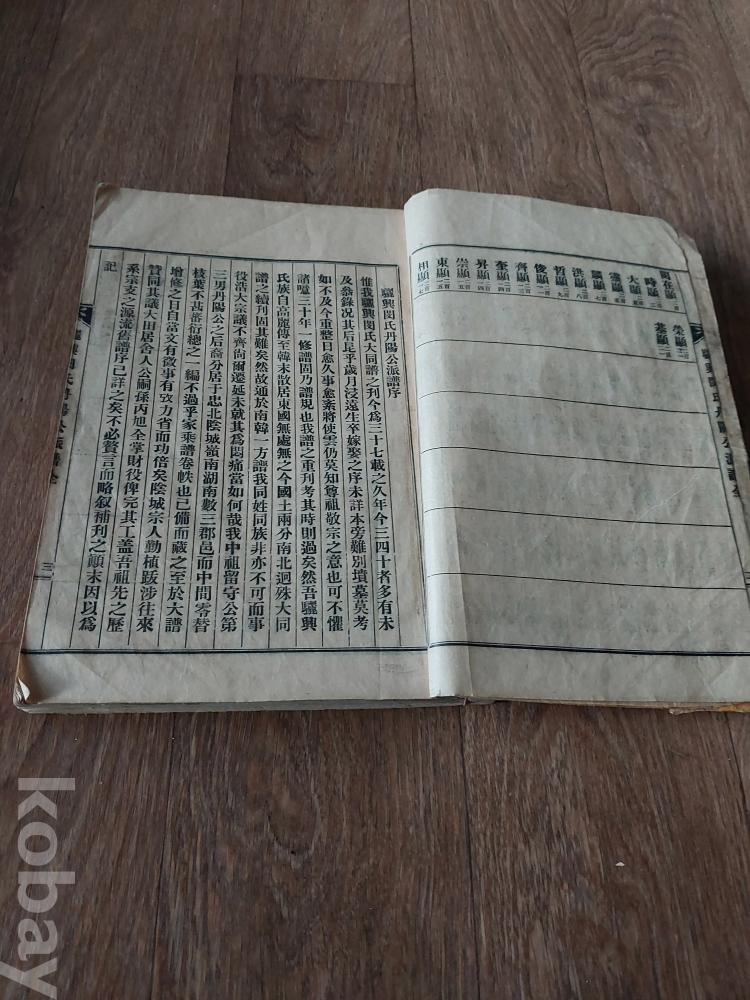 閔在顯
時顯
大顯
瀅顯
驥顯
洪顯
哲顯
俊顯
齊顯
奎顯
昇顯
崇顯
東顯
相顯
榮顯
基顯
驪興閔氏丹陽公派譜全
驪興閔氏丹陽公派譜序
惟我驪興閔氏大同譜之刊今爲三十七載之久年今三四十者多有未
及叅錄况其后長乎歲月浸遠生卒嫁娶之序未詳本旁難別墳墓莫考
如不及今重整日愈久事愈紊將使雲仍莫知尊祖敬宗之意也可不懼
諸噫三十年一修譜固乃譜規也我譜之重刊考其時則過矣然吾驪興
氏族自高麗傳至韓末散居東國無處無之今國土兩分南北迥殊大同
譜之續刊固其難矣然故通於南韓一方譜我同姓同族非亦不可而事
役浩大宗議不齊尙爾遷延未就其爲悶痛當如何哉我中祖留守公第
三男丹陽公之后裔分居于忠北陰城嶺南湖南數三郡邑而中間零替
枝葉不甚蕃衍總之一編不過乎家乘譜卷帙也已備而藏之至於大譜
增修之日自當文有徵事有攷力省而功倍矣陰城宗人勤植跋涉往來
贊同其議大田居舍人公嗣孫丙旭全掌財役俾完其工蓋吾祖先之歷
系宗支之源流舊譜序已詳之矣不必贅言而略叙補刊之顚末因以爲
記
驪興閔氏丹陽公派譜全
三
kobay